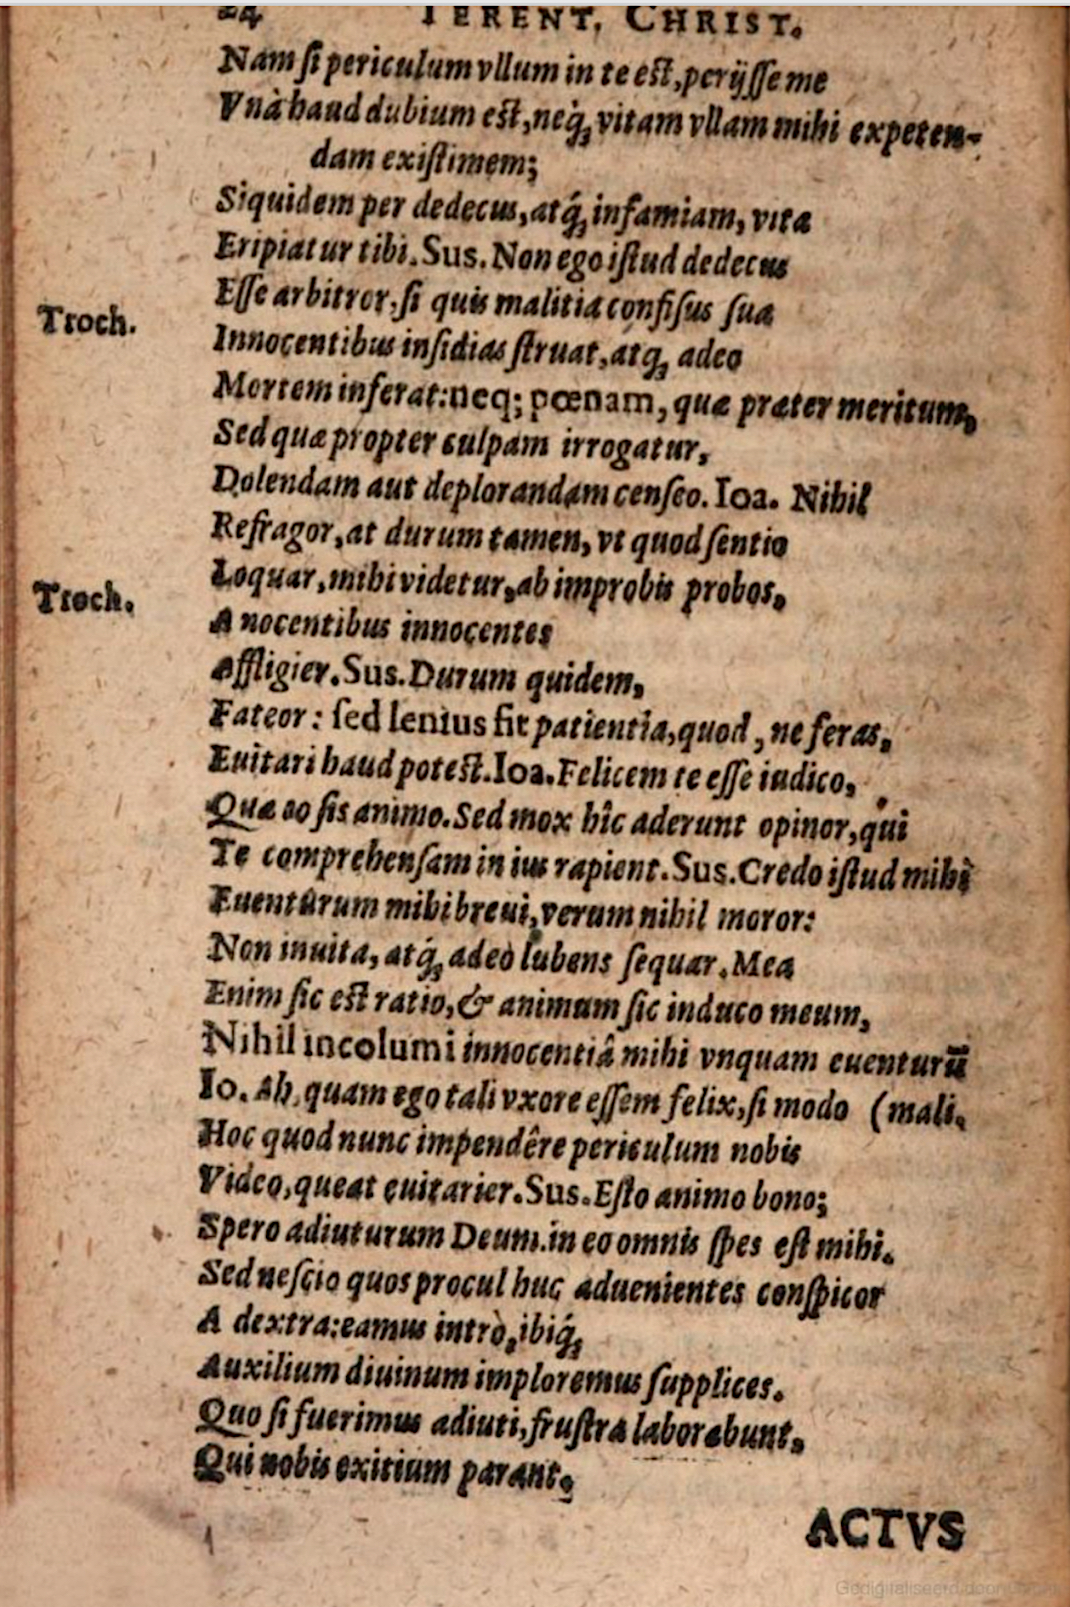 24 TERENT. CHRIST.
Nam ſi periculum vllum in te eſt, perijſſe me
Vnà haud dubium eſt, neq́; vitam vllam mihi expeten-
dam exiſtimem;
Siquidem per dedecus, atq́; infamiam, vita
Eripiatur tibi. Sus. Non ego iſtud dedecus
Eſſe arbitror, ſi quis malitia confiſus ſua
Troch. Innocentibus inſidias ſtruat, atq; adeo
Mortem inferat: neq; pœnam, quæ præter meritum,
Sed quæ propter culpam irrogatur,
Dolendam aut deplorandam cenſeo. Ioa. Nihil
Refragor, at durum tamen, vt quod ſentio
Troch. Loquar, mihi videtur, ab improbis probos,
A nocentibus innocentes
Affligier. Sus. Durum quidem,
Fateor: ſed lenius fit patientia, quod, ne feras,
Euitari haud poteſt. Ioa. Felicem te eſſe iudico,
Quæ eo ſis animo. Sed mox hîc aderunt opinor, qui
Te comprehenſam in ius rapient. Sus. Credo iſtud mihi
Euentûrum mihi breui, verum nihil moror:
Non inuita, atq́; adeò lubens ſequar. Mea
Enim ſic eſt ratio, & animum ſic induco meum,
Nihil incolumi innocentiâ mihi vnquam euenturū
Io. Ah, quam ego tali vxore eſſem felix, ſi modo (mali.
Hoc quod nunc impendêre periculum nobis
Video, queat euitarier. Sus. Eſto animo bono;
Spero adiuturum Deum. in eo omnis ſpes eſt mihi.
Sed neſcio quos procul huc aduenientes conſpicor
A dextra: eamus intrò, ibiq́;
Auxilium diuinum imploremus ſupplices.
Quo ſi fuerimus adiuti, fruſtra laborabunt,
Qui nobis exitium parant.
ACTVS
Gedigitaliseerd door